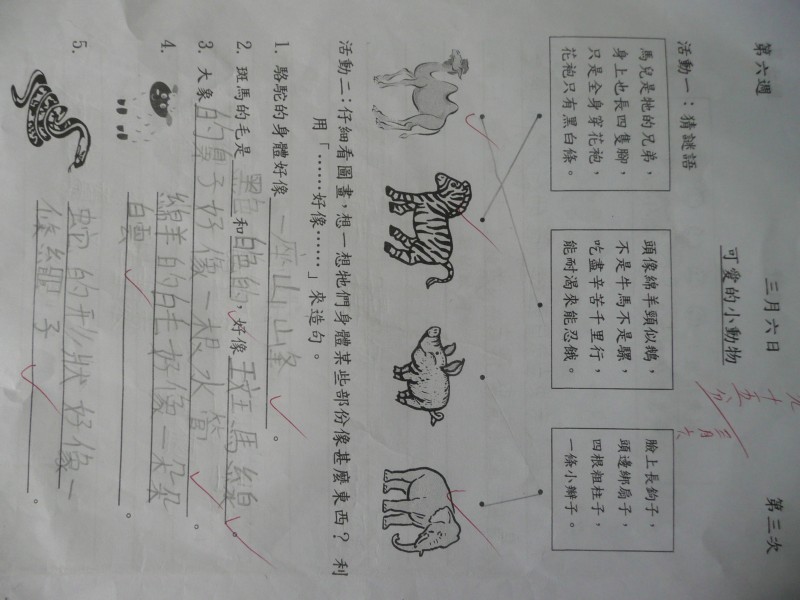 第六週　三月六日　第三次
可愛的小動物
九十五分
三月六
活動一：猜謎語
馬兒是牠的兄弟，
身上也長四隻腳，
只是全身穿花袍，
花袍只有黑白條。
頭像綿羊頸似鵝，
不是牛馬不是騾，
吃盡辛苦千里行，
能耐渴來能忍餓。
臉上長鉤子，
頭邊綁扇子，
四根粗柱子，
一條小辮子。
活動二：仔細看圖畫，想一想牠們身體某些部份像甚麼東西？利
用「……好像……」來造句。
1. 駱駝的身體好像一座山山峰。
2. 斑馬的毛是黑色和白色的，好像斑馬線。
3. 大象的鼻子好像一根水管。
4. 綿羊的白毛好像一朵朵
白雲。
5. 蛇的形狀好像一
條繩子。